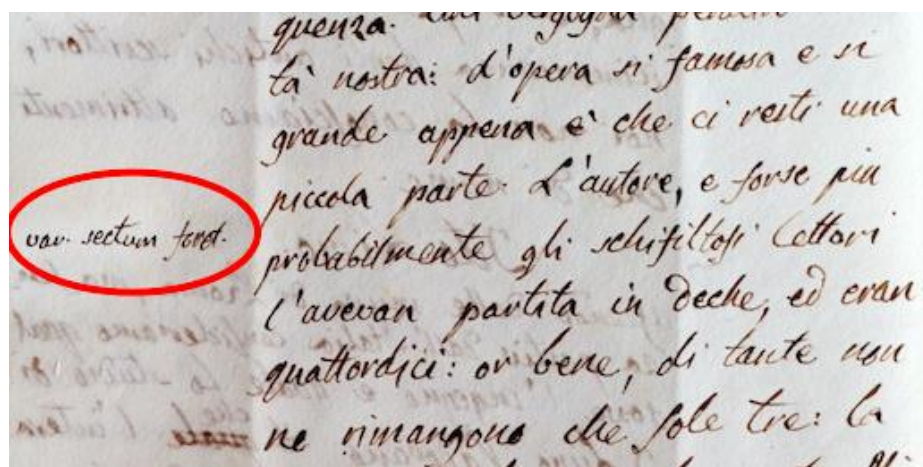 quenza.
tà nostra: d'opera sì famosa e sì
grande appena è che ci resti una
piccola parte. L'autore, e forse più
var. sectum foret.
probabilmente gli schifiltosi lettori
l'avevan partita in deche, ed eran
quattordici: or bene, di tante non
ne rimangono che sole tre: la